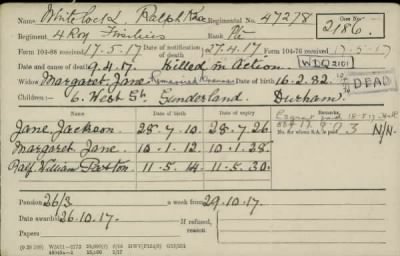 Name Ralph Regimental No. 47278 Case No.
Regiment 4 Roy Fusiliers Rank Pte 2/86.
Form 104-88 received 17.5.17 Date of notification of death 27.4.17 Form 104-76 received 17-5-17
Date and cause of death 9.4.17. Killed in Action. WDQ2101
Widow Margaret Jane Remarried Date of birth 16.2.82. DEAD
Children:- 6 West St. Sunderland Durham.
Date of birth Date of expiry Remarks
Jane Jackson 28.7.10 28.7.26.
Margaret Jane 10.1.12 10.1.28.
Ralf William 11.5.14 11.5.30.
No. for whom S.A. is paid. 3 N/N.
Pension 26/3 a week from 29.10.17.
Date awarded 26.10.17. If refused, reason